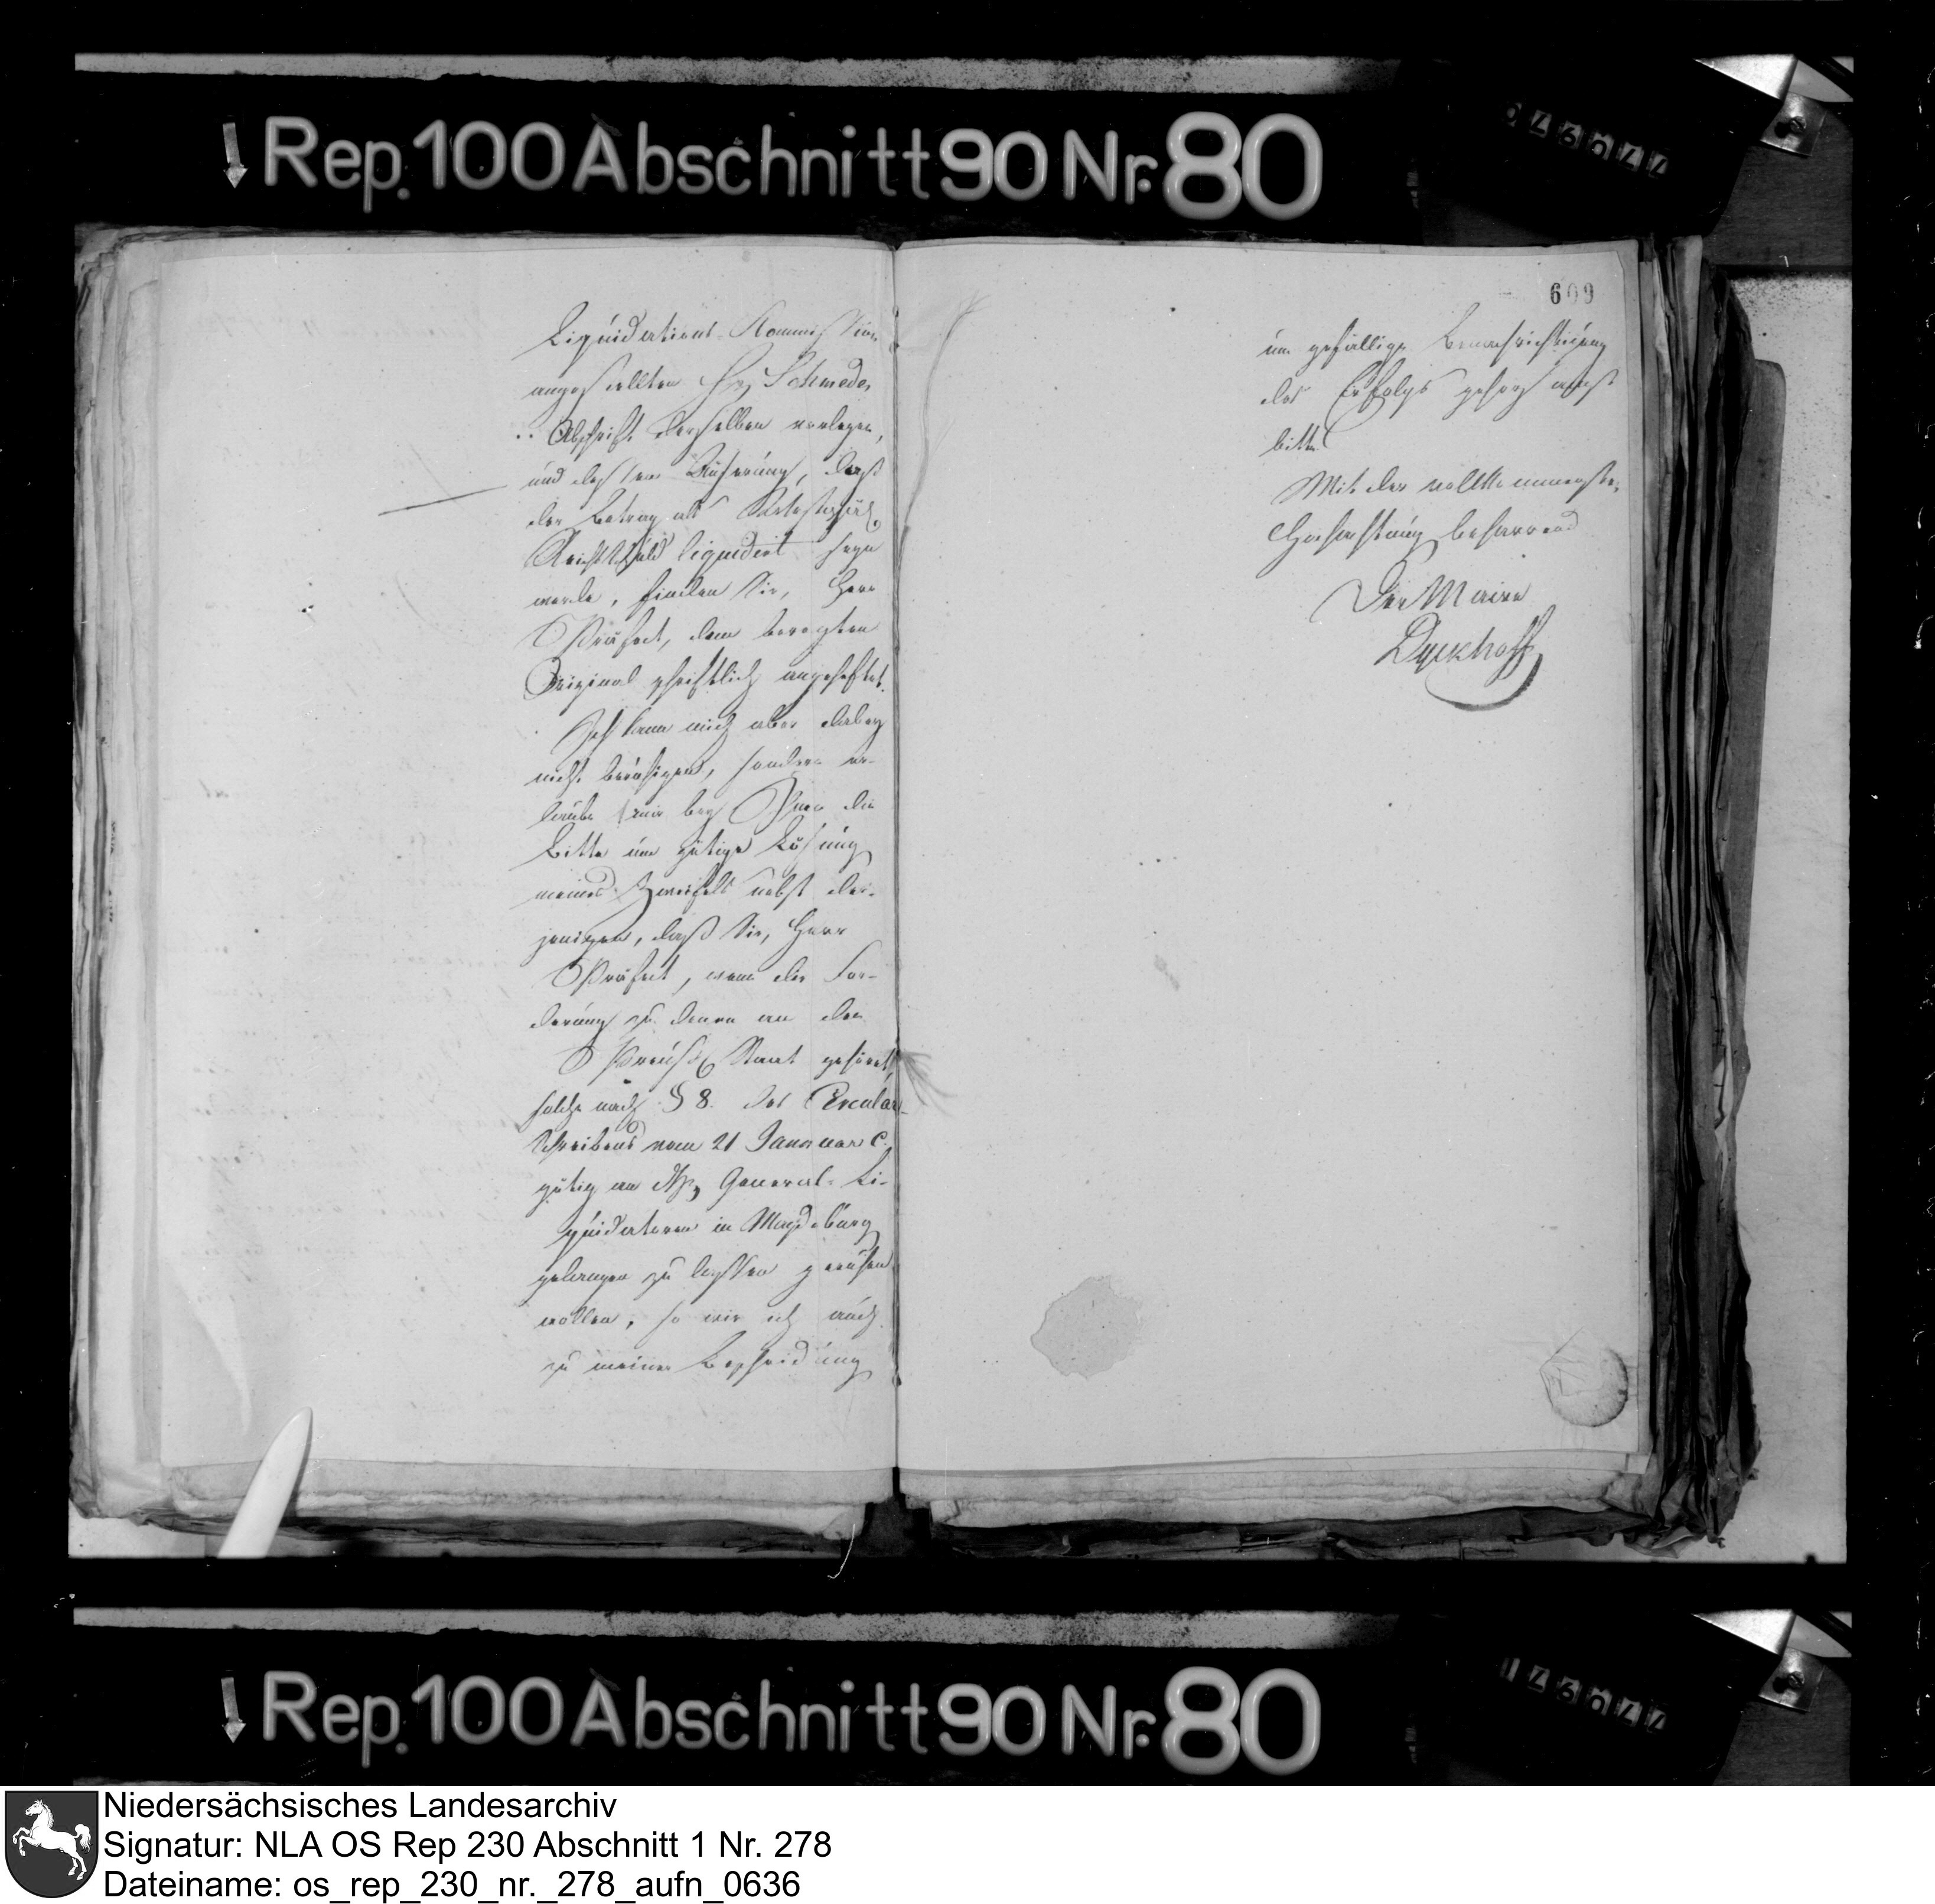 Rep. 100 Abschnitt 90 Nr. 80
Liquidations-Kommission
angestellten H. Schmedes
Abschrift derselben vorlegen,
und dessen Äußerung, daß
der Betrag als
Reichsschuld liquidirt seyn
werde, finden Sie, Herr
Präfect, dem beregten
Original schriftlich angeheftet.
Ich kann mich aber dabey
nicht beruhigen, sondern er-
laube mir bey Ihnen die
Bitte um gütige Lösung
meines Zweifels nebst der-
jenigen, daß Sie, Herr
Präfect, wenn die For-
derung zu denen an den
Preuß. Staat gehöret,
solche nach § 8. des Circular-
Schreibens vom 21 Januar c.
gütig an General-Li-
quidatoren in Magdeburg
gelangen zu lassen geruhen
wollen, so wie ich auch
zu meiner Bescheidung
609
um gefällige Benachrichtigung
des Erfolgs gehorsamst
bitte.
Mit der vollkommensten
Hochachtung beharrend
Der Maire
Dyckhoff
Rep. 100 Abschnitt 90 Nr. 80
Niedersächsisches Landesarchiv
Signatur: NLA OS Rep 230 Abschnitt 1 Nr. 278
Dateiname: os_rep_230_nr._278_aufn_0636